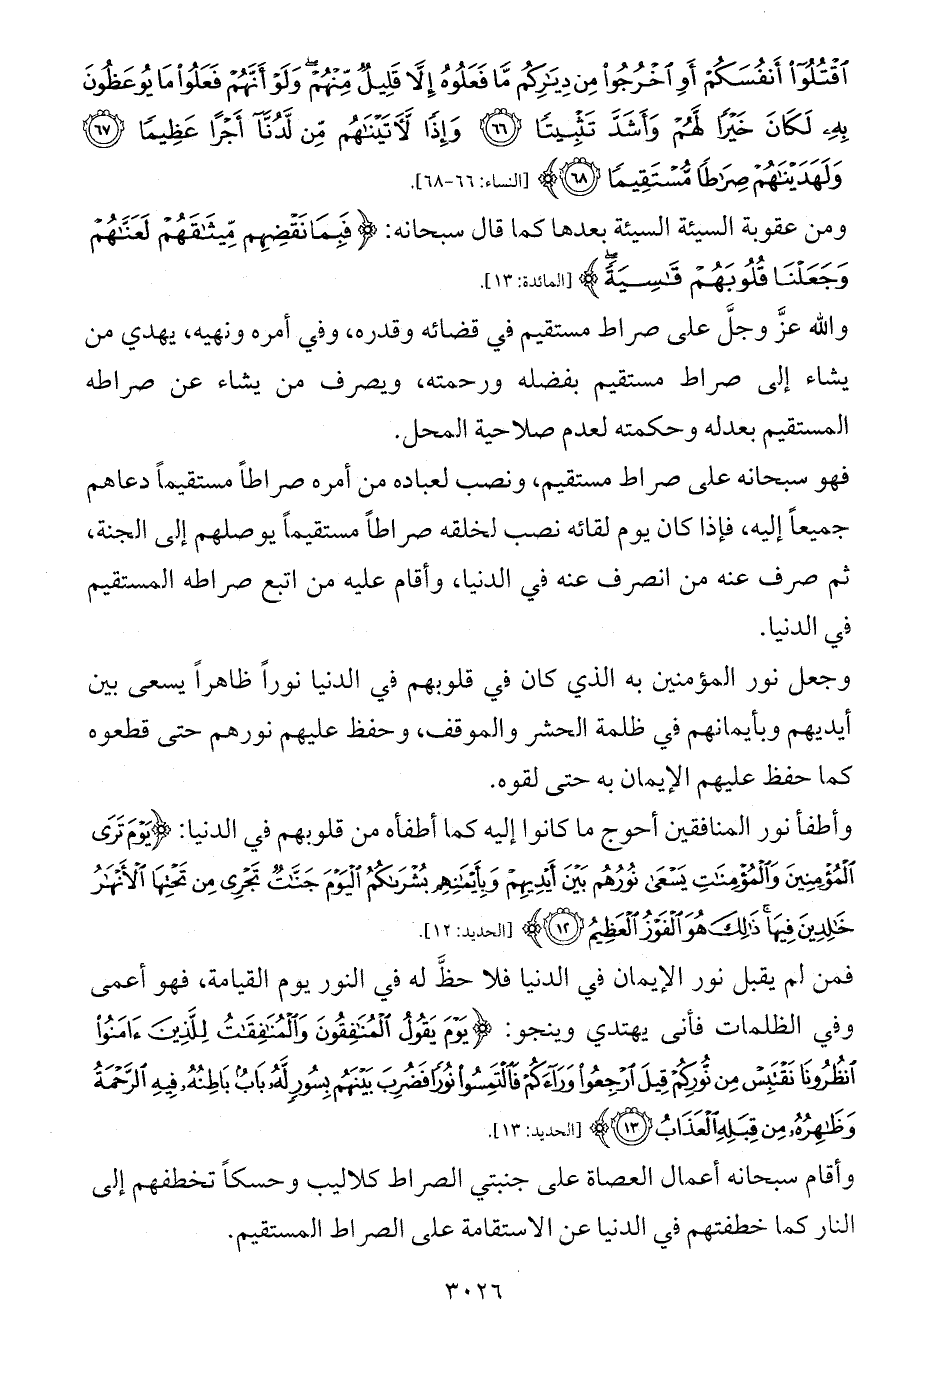 ٱقْتُلُوٓا۟ أَنفُسَكُمْ أَوِ ٱخْرُجُوا۟ مِن دِيَـٰرِكُم مَّا فَعَلُوهُ إِلَّا قَلِيلٌ مِّنْهُمْ ۖ وَلَوْ أَنَّهُمْ فَعَلُوا۟ مَا يُوعَظُونَ
بِهِۦ لَكَانَ خَيْرًا لَّهُمْ وَأَشَدَّ تَثْبِيتًا ﴿٦٦﴾ وَإِذًا لَّـَٔاتَيْنَـٰهُم مِّن لَّدُنَّآ أَجْرًا عَظِيمًا ﴿٦٧﴾
وَلَهَدَيْنَـٰهُمْ صِرَٰطًا مُّسْتَقِيمًا ﴿٦٨﴾﴾ [النساء: ٦٦-٦٨].
ومن عقوبة السيئة السيئة بعدها كما قال سبحانه: ﴿فَبِمَا نَقْضِهِم مِّيثَـٰقَهُمْ لَعَنَّـٰهُمْ
وَجَعَلْنَا قُلُوبَهُمْ قَـٰسِيَةً ۖ﴾ [المائدة: ١٣].
والله عزَّ وجلَّ على صراط مستقيم في قضائه وقدره، وفي أمره ونهيه، يهدي من
يشاء إلى صراط مستقيم بفضله ورحمته، ويصرف من يشاء عن صراطه
المستقيم بعدله وحكمته لعدم صلاحية المحل.
فهو سبحانه على صراط مستقيم، ونصب لعباده من أمره صراطاً مستقيماً دعاهم
جميعاً إليه، فإذا كان يوم لقائه نصب لخلقه صراطاً مستقيماً يوصلهم إلى الجنة،
ثم صرف عنه من انصرف عنه في الدنيا، وأقام عليه من اتبع صراطه المستقيم
في الدنيا.
وجعل نور المؤمنين به الذي كان في قلوبهم في الدنيا نوراً ظاهراً يسعى بين
أيديهم وبأيمانهم في ظلمة الحشر والموقف، وحفظ عليهم نورهم حتى قطعوه
كما حفظ عليهم الإيمان به حتى لقوه.
وأطفأ نور المنافقين أحوج ما كانوا إليه كما أطفأه من قلوبهم في الدنيا: ﴿يَوْمَ تَرَى
ٱلْمُؤْمِنِينَ وَٱلْمُؤْمِنَـٰتِ يَسْعَىٰ نُورُهُم بَيْنَ أَيْدِيهِمْ وَبِأَيْمَـٰنِهِم بُشْرَىٰكُمُ ٱلْيَوْمَ جَنَّـٰتٌ تَجْرِى مِن تَحْتِهَا ٱلْأَنْهَـٰرُ
خَـٰلِدِينَ فِيهَا ۚ ذَٰلِكَ هُوَ ٱلْفَوْزُ ٱلْعَظِيمُ ﴿١٢﴾﴾ [الحديد: ١٢].
فمن لم يقبل نور الإيمان في الدنيا فلا حظَّ له في النور يوم القيامة، فهو أعمى
وفي الظلمات فأنى يهتدي وينجو: ﴿يَوْمَ يَقُولُ ٱلْمُنَـٰفِقُونَ وَٱلْمُنَـٰفِقَـٰتُ لِلَّذِينَ ءَامَنُوا۟
ٱنظُرُونَا نَقْتَبِسْ مِن نُّورِكُمْ قِيلَ ٱرْجِعُوا۟ وَرَآءَكُمْ فَٱلْتَمِسُوا۟ نُورًا فَضُرِبَ بَيْنَهُم بِسُورٍ لَّهُۥ بَابٌۢ بَاطِنُهُۥ فِيهِ ٱلرَّحْمَةُ
وَظَـٰهِرُهُۥ مِن قِبَلِهِ ٱلْعَذَابُ ﴿١٣﴾﴾ [الحديد: ١٣].
وأقام سبحانه أعمال العصاة على جنبتي الصراط كلاليب وحسكاً تخطفهم إلى
النار كما خطفتهم في الدنيا عن الاستقامة على الصراط المستقيم.
٣٠٢٦